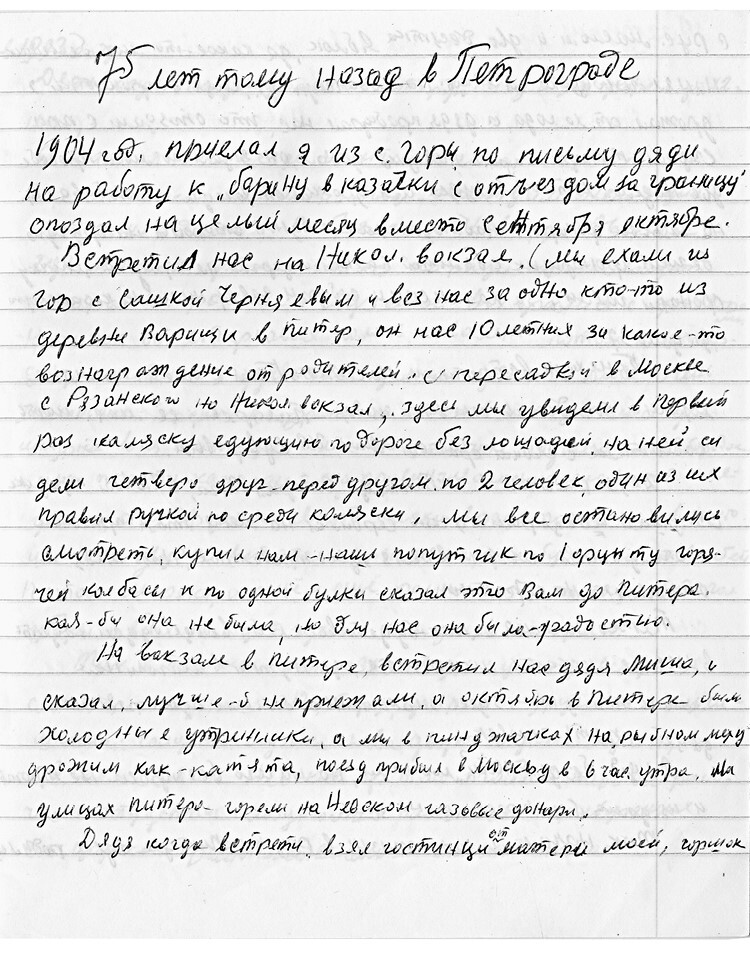 75 лет тому назад в Петрограде
1904 год, приехал я из с. горы, по письму дяди
на работу к „барину в казачки с отъездом за границу"
опоздал на целый месяц вместо сентября октябре.
Встретил нас на Никол. вокзал. (мы ехали из
гор с Сашкой Черняевым и вез нас заодно кто-то из
деревни Варищи в питер, он нас 10 летних за какое-то
вознаграждение от родителей. с пересадкой в Москве
с Рязанского на Никол. вокзал, здесь мы увидели в первый
раз каляску едующию по дороге без лошадей, на ней си
дели четверо друг-перед другом. по 2 человек, один из них
правил ручкой по среди коляски, мы все остановились
смотреть, купил нам-наш попутчик по 1 фунту горя-
чей колбасы и по одной булки сказал это Вам до питера.
кая-бы она не была, но для нас она было-радостию.
На вокзале в питере, встретил нас дядя Миша, и
сказал, лучше-б не приежали, а октябрь в питере были
холодные утринники, а мы в пинджачках на рыбном меху
дрожим как-катята, поезд прибыл в Москву в 6 час утра. На
улицах питера-горели на Невском газовые фонари.
Дядя когда встрети. взял гостинци от матери моей, горшок